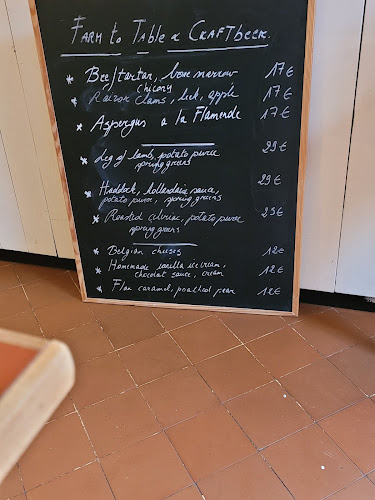 FARM to TABLE & CRAFTbeer.
* Beef tartar, bone marrow 17€
chicory
* Razor clams, leek, apple 17€
* Aspergus a la Flamende 17€
* Leg of lamb, potato puree 29€
spring greens
* Haddock, hollandaise sauce, 29€
potato puree, spring greens
* Roasted celeriac, potato puree 25€
spring greens
* Belgian cheeses 12€
* Homemade vanilla icecream, 12€
chocolat sauce, cream
* Flan caramel, poached pear 12€